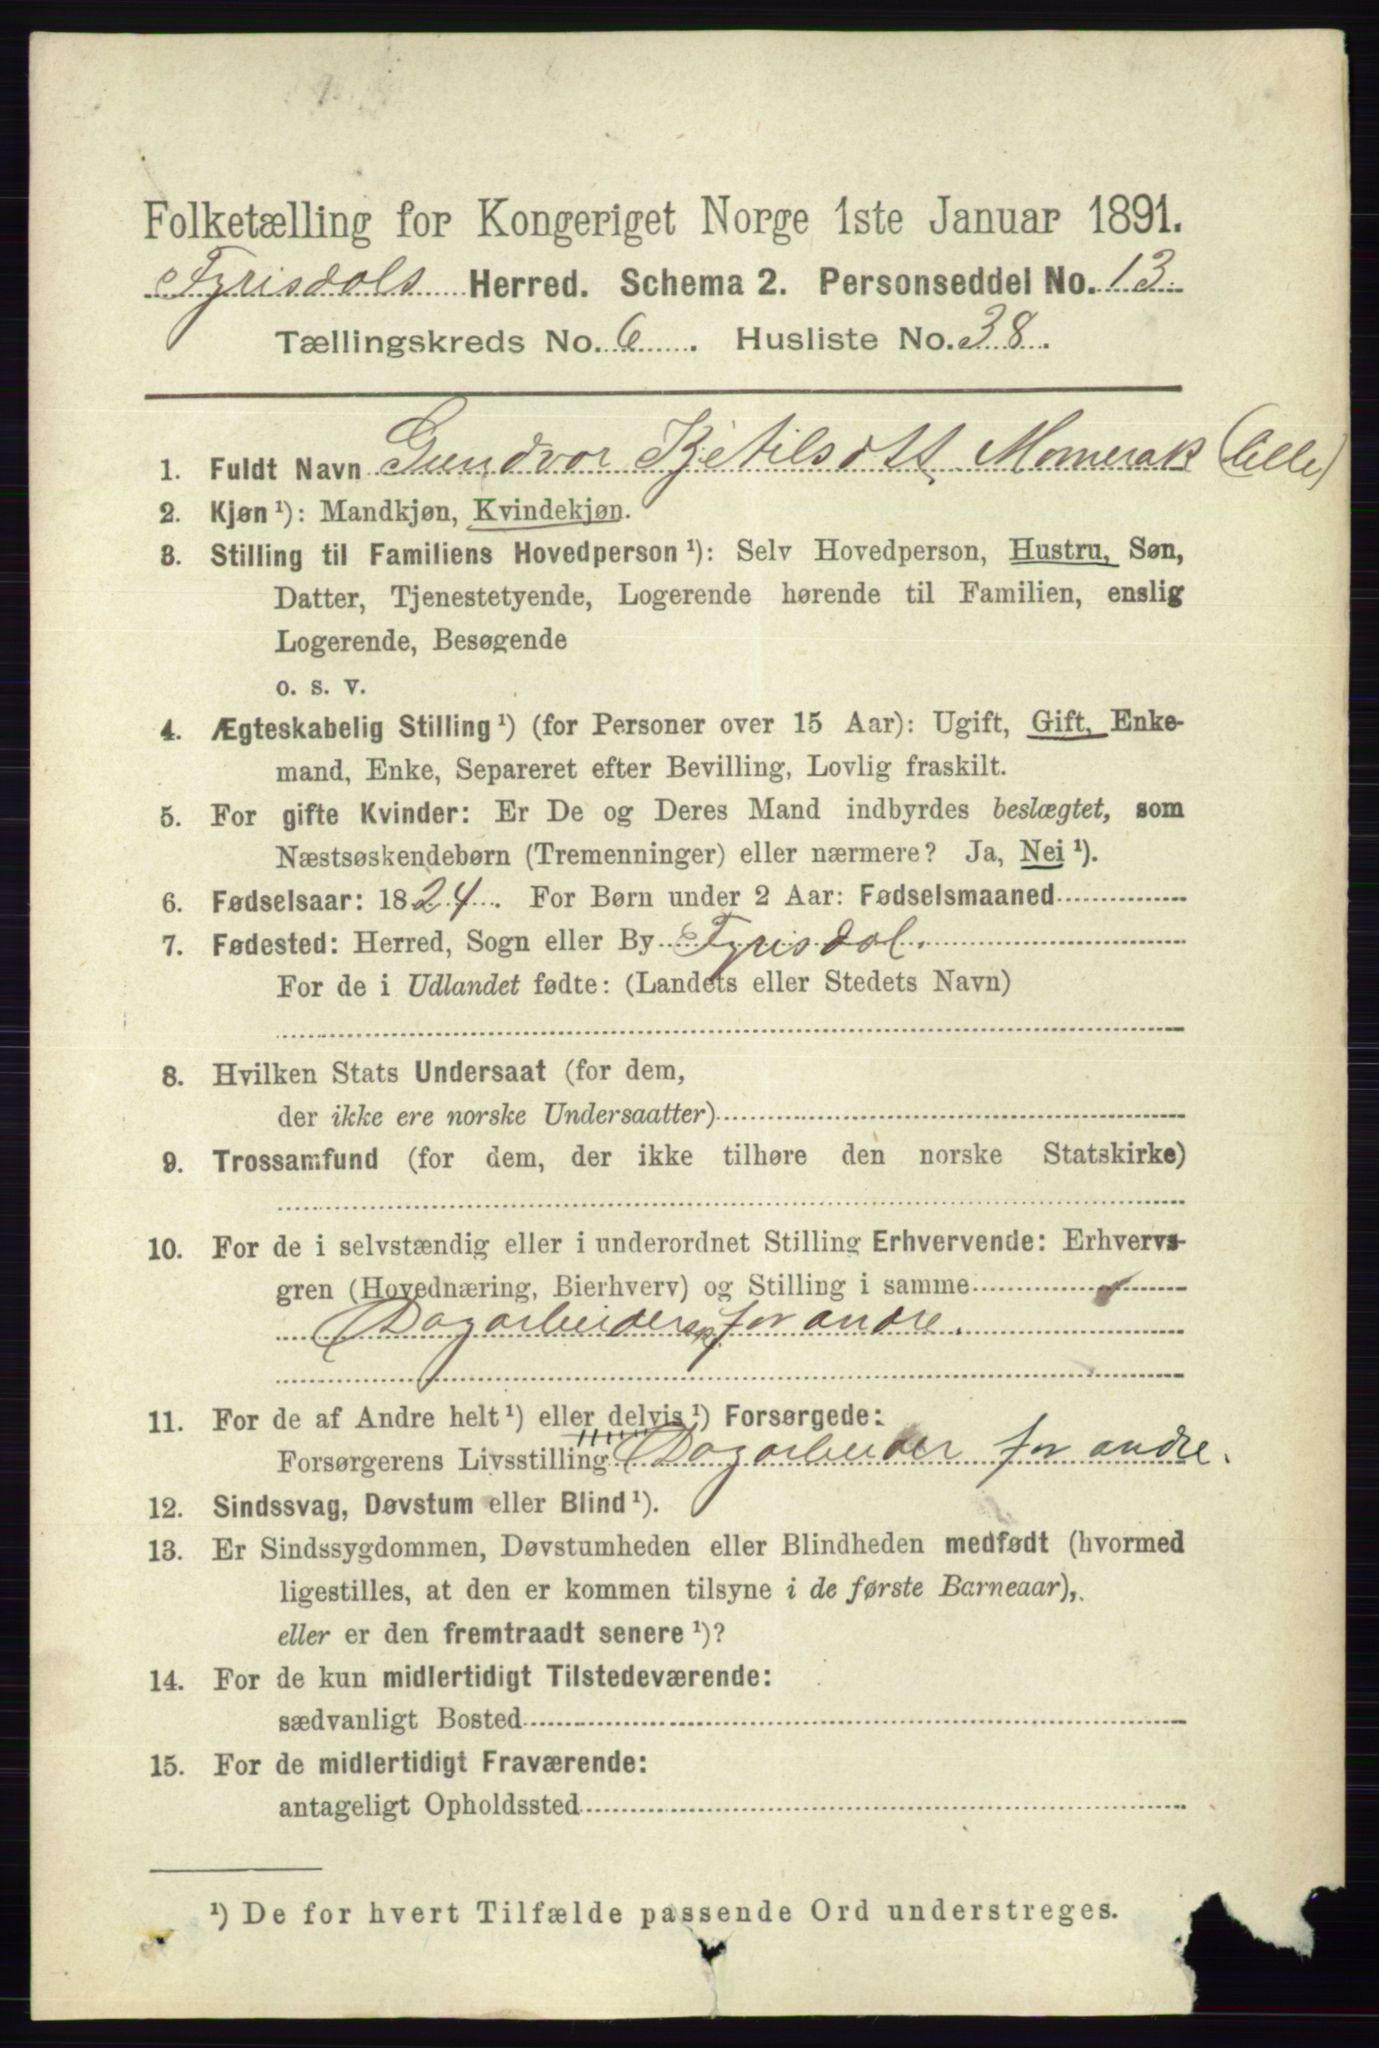 Folketælling for Kongeriget Norge 1ste Januar 1891.
Fyrisdals Herred. Schema 2. Personseddel No. 13
Tællingskreds No. 6 . Husliste No. 38.
1. Fuldt Navn Gundvor Kjetilsdtt. Momrak (lille)
2. Kjøn ¹): Mandkjøn, Kvindekjøn.
3. Stilling til Familiens Hovedperson ¹): Selv Hovedperson, Hustru, Søn,
Datter, Tjenestetyende, Logerende hørende til Familien, enslig
Logerende, Besøgende
o. s. v.
4. Ægteskabelig Stilling ¹) (for Personer over 15 Aar): Ugift, Gift, Enke-
mand, Enke, Separeret efter Bevilling, Lovlig fraskilt.
5. For gifte Kvinder: Er De og Deres Mand indbyrdes beslægtet, som
Næstsøskendebørn (Tremenninger) eller nærmere? Ja, Nei ¹).
6. Fødselsaar: 1824. For Børn under 2 Aar: Fødselsmaaned
7. Fødested: Herred, Sogn eller By Fyrisdal.
For de i Udlandet fødte: (Landets eller Stedets Navn)
8. Hvilken Stats Undersaat (for dem,
der ikke ere norske Undersaatter)
9. Trossamfund (for dem, der ikke tilhøre den norske Statskirke)
10. For de i selvstændig eller i underordnet Stilling Erhvervende: Erhvervs-
gren (Hovednæring, Bierhverv) og Stilling i samme
Dagarbeider for andre.
11. For de af Andre helt ¹) eller delvis ¹) Forsørgede:
Forsørgerens Livsstilling Dagarbeider for andre.
12. Sindssvag, Døvstum eller Blind ¹).
13. Er Sindssygdommen, Døvstumheden eller Blindheden medfødt (hvormed
ligestilles, at den er kommen tilsyne i de første Barneaar),
eller er den fremtraadt senere ¹)?
14. For de kun midlertidigt Tilstedeværende:
sædvanligt Bosted
15. For de midlertidigt Fraværende:
antageligt Opholdssted
¹) De for hvert Tilfælde passende Ord understreges.